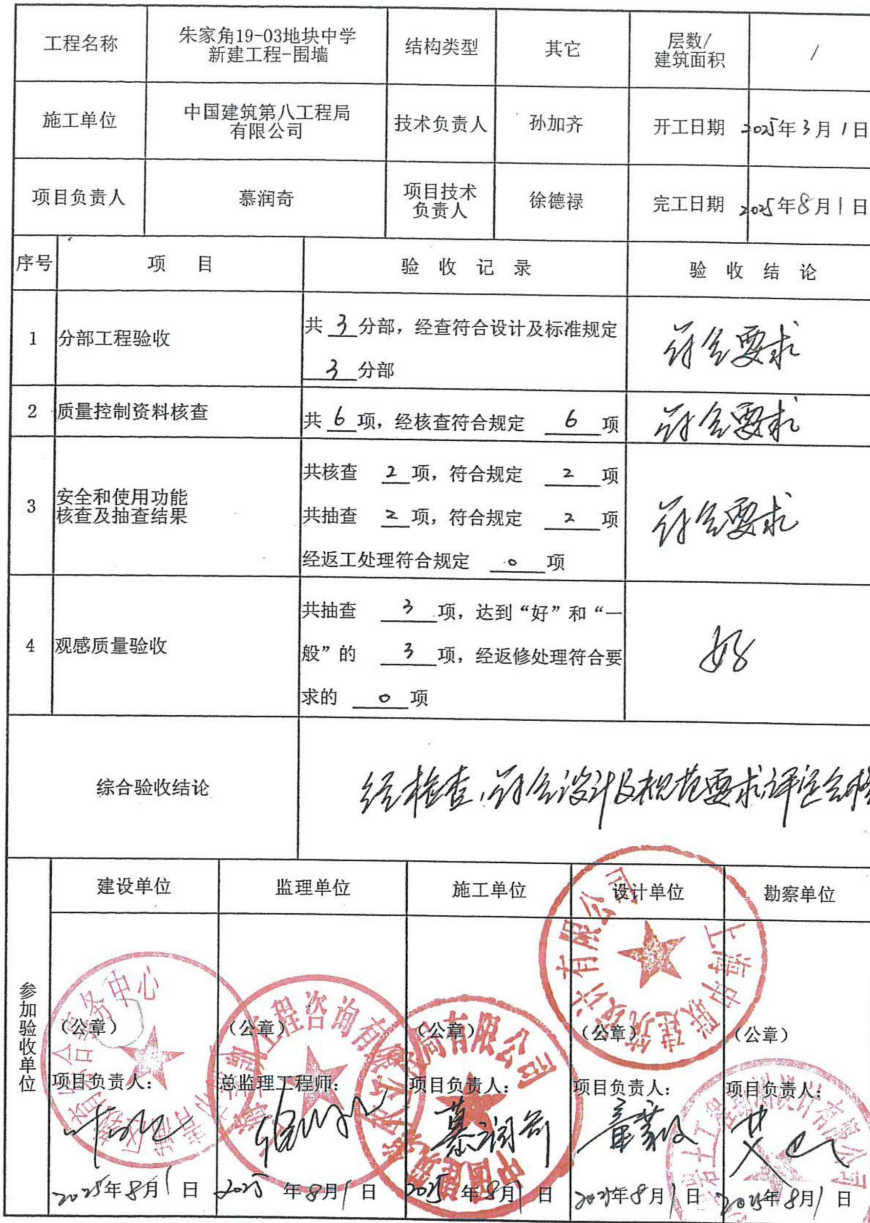 工程名称
朱家角19-03地块中学
新建工程-围墙
结构类型
其它
层数/
建筑面积
/
施工单位
中国建筑第八工程局
有限公司
技术负责人
孙加齐
开工日期
2025年3月1日
项目负责人
慕润奇
项目技术
负责人
徐德禄
完工日期
2025年8月1日
序号
项 目
验 收 记 录
验 收 结 论
1
分部工程验收
共 3 分部，经查符合设计及标准规定
3 分部
符合要求
2
质量控制资料核查
共 6 项，经核查符合规定 6 项
符合要求
3
安全和使用功能
核查及抽查结果
共核查 2 项，符合规定 2 项
共抽查 2 项，符合规定 2 项
经返工处理符合规定 0 项
符合要求
4
观感质量验收
共抽查 3 项，达到“好”和“一
般”的 3 项，经返修处理符合要
求的 0 项
好
综合验收结论
经检查,符合设计及规范要求评定合格
参加验收单位
建设单位
监理单位
施工单位
设计单位
勘察单位
（公章）
（公章）
（公章）
（公章）
（公章）
项目负责人：
总监理工程师：
项目负责人：
项目负责人：
项目负责人：
慕润奇
2025年8月1日
2025年8月1日
2025年8月1日
2025年8月1日
2025年8月1日
工程咨询有限
局有限公司
上海中联建筑设计有限公司